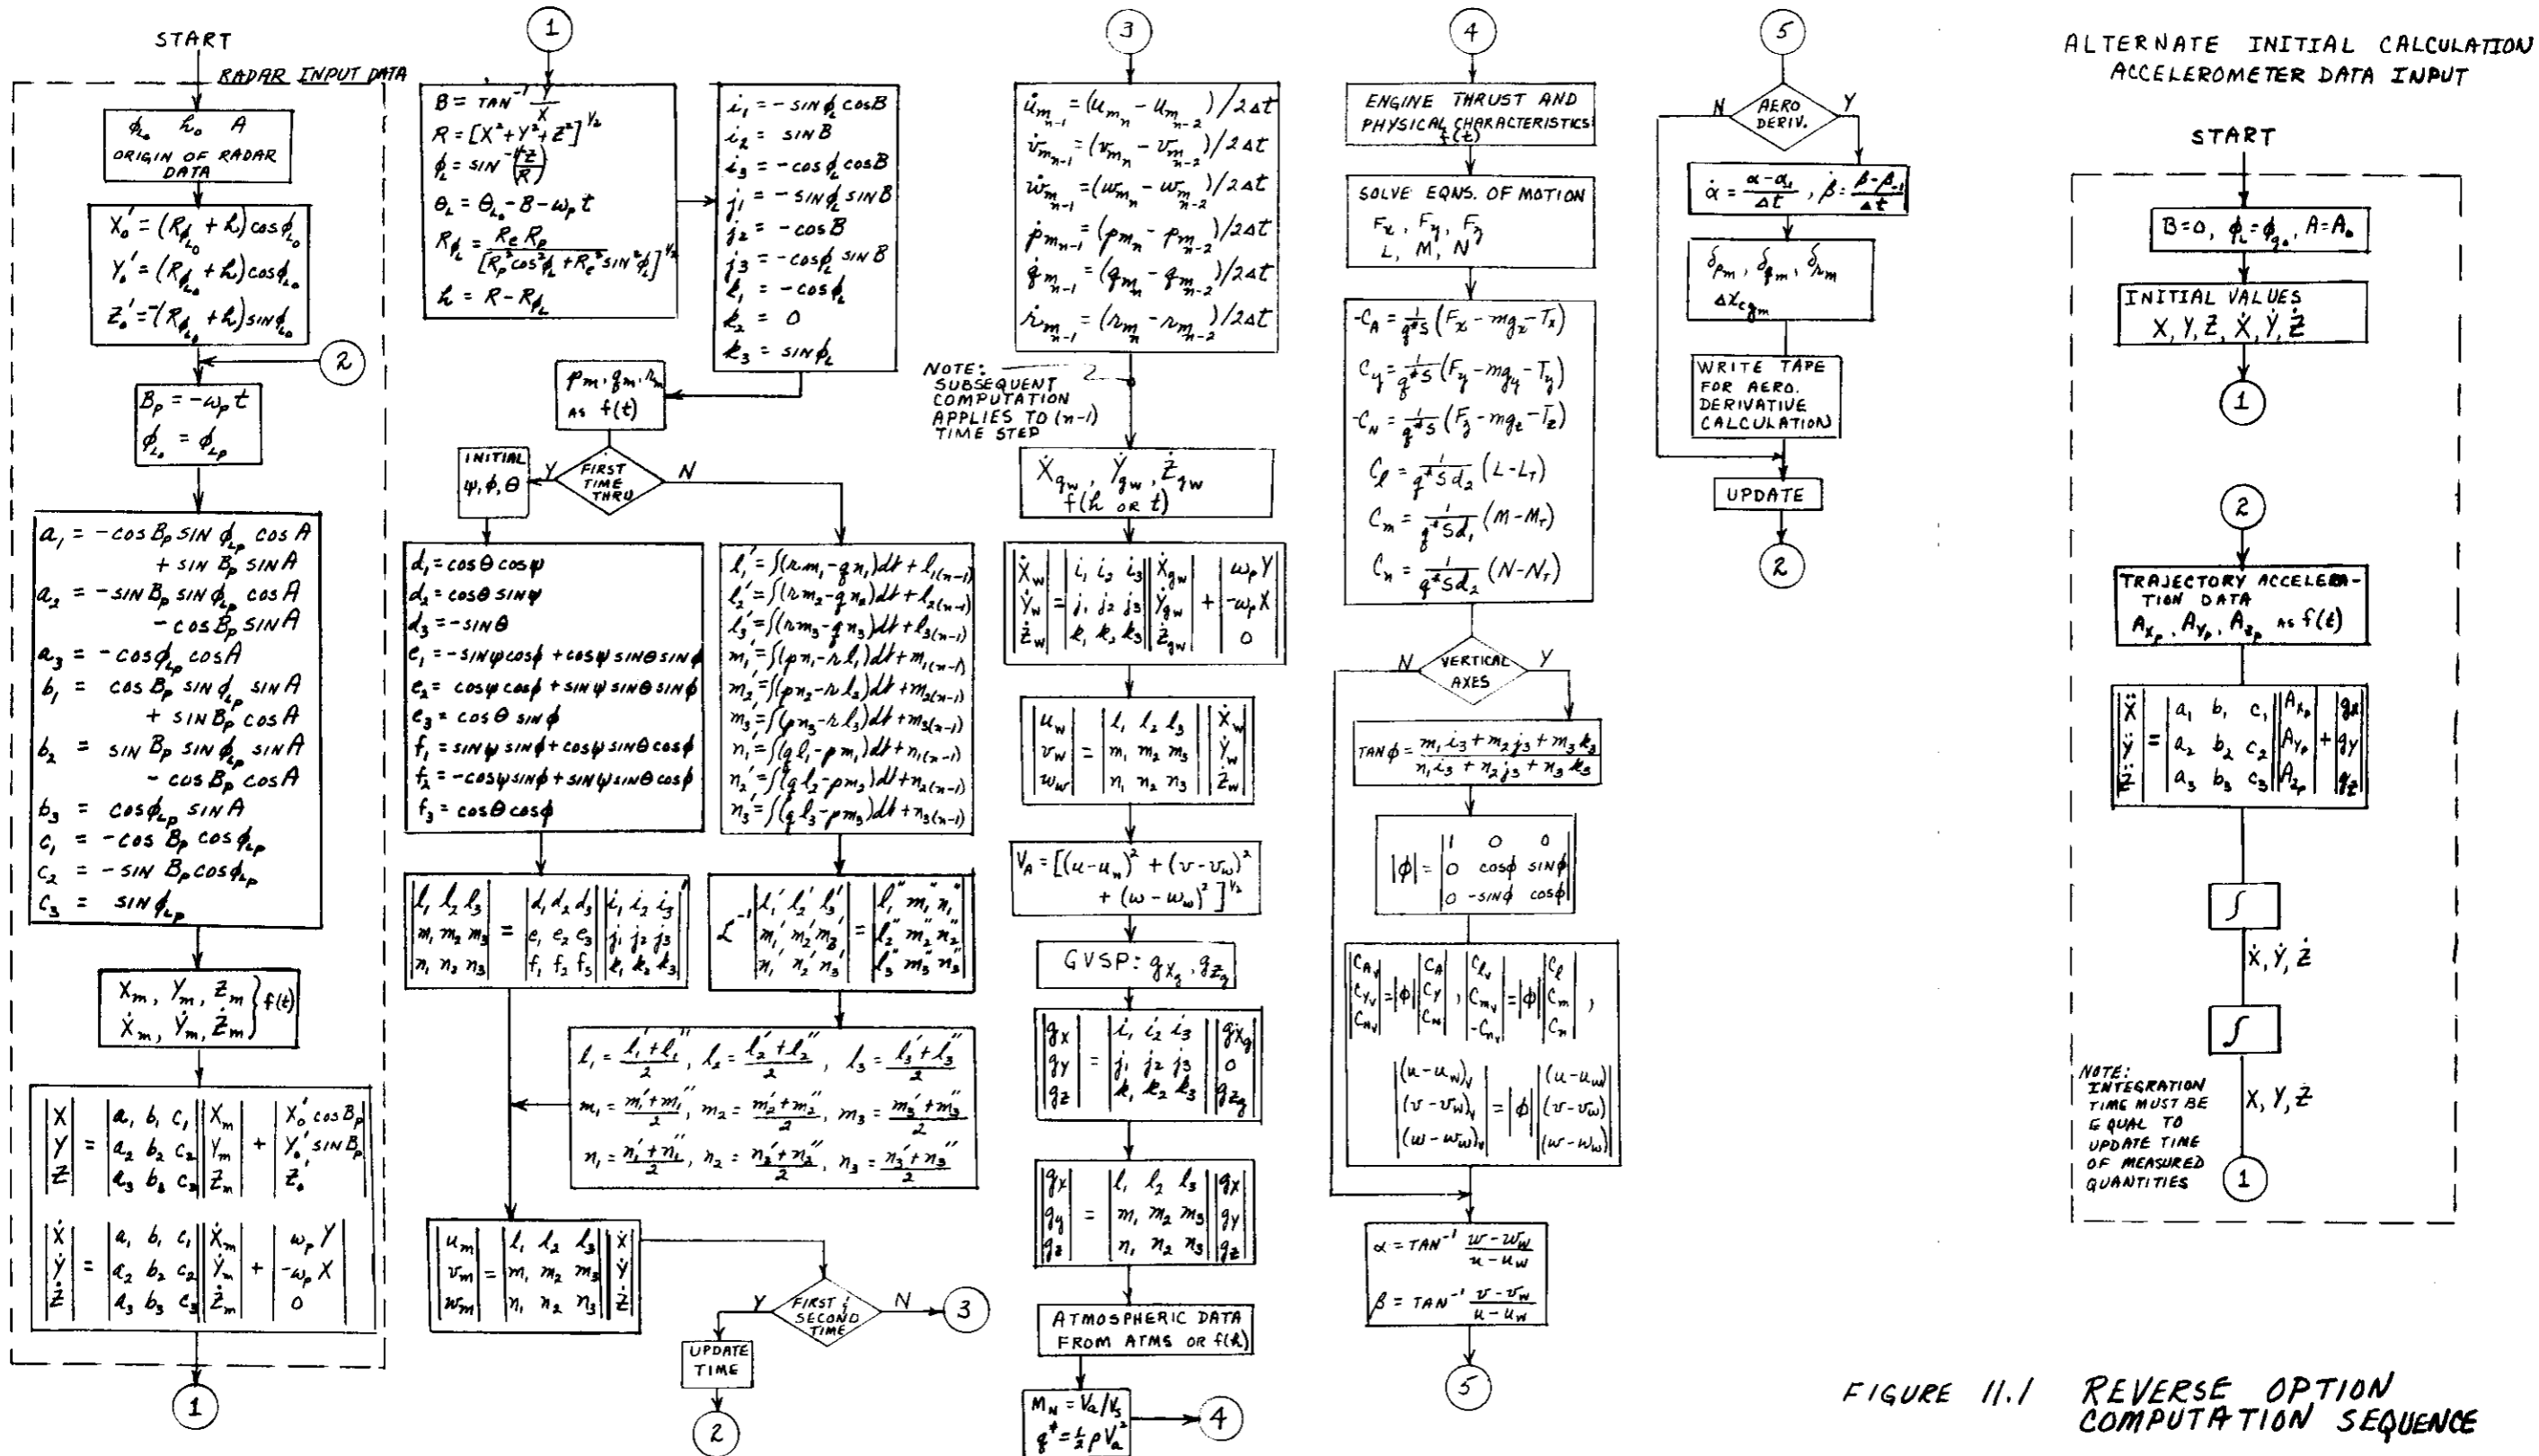 START
RADAR INPUT DATA
ϕ_L₀ h₀ A
ORIGIN OF RADAR
DATA
X₀' = (R_ϕL₀ + h) cos ϕ_L₀
Y₀' = (R_ϕL₀ + h) cos ϕ_L₀
Z₀' = -(R_ϕL₀ + h) sin ϕ_L₀
2
B_p = -ω_p t
ϕ_L₀ = ϕ_Lp
a₁ = -cos B_p SIN ϕ_Lp cos A
+ SIN B_p SIN A
a₂ = -SIN B_p SIN ϕ_Lp cos A
- cos B_p SIN A
a₃ = -cos ϕ_Lp cos A
b₁ = cos B_p SIN ϕ_Lp SIN A
+ SIN B_p cos A
b₂ = SIN B_p SIN ϕ_Lp SIN A
- cos B_p cos A
b₃ = cos ϕ_Lp SIN A
c₁ = -cos B_p cos ϕ_Lp
c₂ = -SIN B_p cos ϕ_Lp
c₃ = SIN ϕ_Lp
X_m, Y_m, Z_m } f(t)
Ẋ_m, Ẏ_m, Ż_m
|X| = |a₁ b₁ c₁| |X_m| + |X₀' cos B_p|
|Y| = |a₂ b₂ c₂| |Y_m| + |Y₀' sin B_p|
|Z| = |a₃ b₃ c₃| |Z_m| + |Z₀'|
|Ẋ| = |a₁ b₁ c₁| |Ẋ_m| + |ω_p Y|
|Ẏ| = |a₂ b₂ c₂| |Ẏ_m| + |-ω_p X|
|Ż| = |a₃ b₃ c₃| |Ż_m| + |0|
1
1
B = TAN⁻¹ Y/X
R = [X² + Y² + Z²]^½
ϕ_L = SIN⁻¹ (-Z/R)
θ_L = θ_L₀ - B - ω_p t
R_ϕL = R_e R_p / [R_p² cos² ϕ_L + R_e² SIN² ϕ_L]^½
h = R - R_ϕL
i₁ = -SIN ϕ_L cos B
i₂ = SIN B
i₃ = -cos ϕ_L cos B
j₁ = -SIN ϕ_L SIN B
j₂ = -cos B
j₃ = -cos ϕ_L SIN B
k₁ = -cos ϕ_L
k₂ = 0
k₃ = SIN ϕ_L
p_m, q_m, r_m
AS f(t)
FIRST
TIME
THRU
Y
N
INITIAL
ψ, ϕ, θ
d₁ = cos θ cos ψ
d₂ = cos θ sin ψ
d₃ = -SIN θ
e₁ = -SIN ψ cos ϕ + cos ψ SIN θ SIN ϕ
e₂ = cos ψ cos ϕ + SIN ψ SIN θ SIN ϕ
e₃ = cos θ SIN ϕ
f₁ = SIN ψ SIN ϕ + cos ψ SIN θ cos ϕ
f₂ = -cos ψ SIN ϕ + SIN ψ SIN θ cos ϕ
f₃ = cos θ cos ϕ
l₁' = ∫(r m₁ - q n₁)dt + l₁(n-1)
l₂' = ∫(r m₂ - q n₂)dt + l₂(n-1)
l₃' = ∫(r m₃ - q n₃)dt + l₃(n-1)
m₁' = ∫(p n₁ - r l₁)dt + m₁(n-1)
m₂' = ∫(p n₂ - r l₂)dt + m₂(n-1)
m₃' = ∫(p n₃ - r l₃)dt + m₃(n-1)
n₁' = ∫(q l₁ - p m₁)dt + n₁(n-1)
n₂' = ∫(q l₂ - p m₂)dt + n₂(n-1)
n₃' = ∫(q l₃ - p m₃)dt + n₃(n-1)
|l₁ l₂ l₃| = |d₁ d₂ d₃| |i₁ i₂ i₃|'
|m₁ m₂ m₃| = |e₁ e₂ e₃| |j₁ j₂ j₃|
|n₁ n₂ n₃| = |f₁ f₂ f₃| |k₁ k₂ k₃|
ℒ⁻¹ |l₁' l₂' l₃'| = |l₁'' m₁'' n₁''|
|m₁' m₂' m₃'| = |l₂'' m₂'' n₂''|
|n₁' n₂' n₃'| = |l₃'' m₃'' n₃''|
l₁ = (l₁' + l₁'')/2, l₂ = (l₂' + l₂'')/2, l₃ = (l₃' + l₃'')/2
m₁ = (m₁' + m₁'')/2, m₂ = (m₂' + m₂'')/2, m₃ = (m₃' + m₃'')/2
n₁ = (n₁' + n₁'')/2, n₂ = (n₂' + n₂'')/2, n₃ = (n₃' + n₃'')/2
|u_m| = |l₁ l₂ l₃| |Ẋ|
|v_m| = |m₁ m₂ m₃| |Ẏ|
|w_m| = |n₁ n₂ n₃| |Ż|
FIRST &
SECOND
TIME
Y
N
3
UPDATE
TIME
2
3
u̇_m n-1 = (u_m n - u_m n-2)/2Δt
v̇_m n-1 = (v_m n - v_m n-2)/2Δt
ẇ_m n-1 = (w_m n - w_m n-2)/2Δt
ṗ_m n-1 = (p_m n - p_m n-2)/2Δt
q̇_m n-1 = (q_m n - q_m n-2)/2Δt
ṙ_m n-1 = (r_m n - r_m n-2)/2Δt
NOTE:
SUBSEQUENT
COMPUTATION
APPLIES TO (n-1)
TIME STEP
Ẋ_gw, Ẏ_gw, Ż_gw
f(h OR t)
|Ẋ_w| = |i₁ i₂ i₃| |Ẋ_gw| + |ω_p Y|
|Ẏ_w| = |j₁ j₂ j₃| |Ẏ_gw| + |-ω_p X|
|Ż_w| = |k₁ k₂ k₃| |Ż_gw| + |0|
|u_w| = |l₁ l₂ l₃| |Ẋ_w|
|v_w| = |m₁ m₂ m₃| |Ẏ_w|
|w_w| = |n₁ n₂ n₃| |Ż_w|
V_A = [(u-u_w)² + (v-v_w)²
+ (w-w_w)²]^½
GVSP: g_Xg, g_Zg
|g_X| = |i₁ i₂ i₃| |g_Xg|
|g_Y| = |j₁ j₂ j₃| |0|
|g_Z| = |k₁ k₂ k₃| |g_Zg|
|g_x| = |l₁ l₂ l₃| |g_X|
|g_y| = |m₁ m₂ m₃| |g_Y|
|g_z| = |n₁ n₂ n₃| |g_Z|
ATMOSPHERIC DATA
FROM ATMS OR f(h)
M_N = V_a/V_s
q* = ½ ρ V_a²
4
4
ENGINE THRUST AND
PHYSICAL CHARACTERISTICS
f(t)
SOLVE EQNS. OF MOTION
F_x, F_y, F_z
L, M, N
-C_A = 1/q*S (F_x - mg_x - T_x)
C_y = 1/q*S (F_y - mg_y - T_y)
-C_N = 1/q*S (F_z - mg_z - T_z)
C_l = 1/q*Sd₂ (L - L_T)
C_m = 1/q*Sd₁ (M - M_T)
C_n = 1/q*Sd₂ (N - N_T)
VERTICAL
AXES
N
Y
TAN ϕ = (m₁i₃ + m₂j₃ + m₃k₃)/(n₁i₃ + n₂j₃ + n₃k₃)
|ϕ| = |1 0 0|
|0 cosϕ sinϕ|
|0 -sinϕ cosϕ|
|C_Av| = |ϕ| |C_A|, |C_lv| = |ϕ| |C_l|,
|C_Yv| |C_Y| |C_mv| |C_m|
|C_Nv| |C_N| |-C_nv| |C_n|
|(u-u_w)_v| = |ϕ| |(u-u_w)|
|(v-v_w)_v| |(v-v_w)|
|(w-w_w)_v| |(w-w_w)|
α = TAN⁻¹ (w-w_w)/(u-u_w)
β = TAN⁻¹ (v-v_w)/(u-u_w)
5
5
AERO
DERIV.
N
Y
α̇ = (α-α₋₁)/Δt, β̇ = (β-β₋₁)/Δt
δ_pm, δ_qm, δ_rm
Δx_cgm
WRITE TAPE
FOR AERO.
DERIVATIVE
CALCULATION
UPDATE
2
ALTERNATE INITIAL CALCULATION
ACCELEROMETER DATA INPUT
START
B=0, ϕ_L=ϕ_g₀, A=A₀
INITIAL VALUES
X, Y, Z, Ẋ, Ẏ, Ż
1
2
TRAJECTORY ACCELERA-
TION DATA
A_Xp, A_Yp, A_Zp AS f(t)
|Ẍ| = |a₁ b₁ c₁| |A_Xp| + |g_X|
|Ÿ| = |a₂ b₂ c₂| |A_Yp| + |g_Y|
|Z̈| = |a₃ b₃ c₃| |A_Zp| + |g_Z|
∫
Ẋ, Ẏ, Ż
∫
X, Y, Z
NOTE:
INTEGRATION
TIME MUST BE
EQUAL TO
UPDATE TIME
OF MEASURED
QUANTITIES
1
FIGURE 11.1 REVERSE OPTION
COMPUTATION SEQUENCE